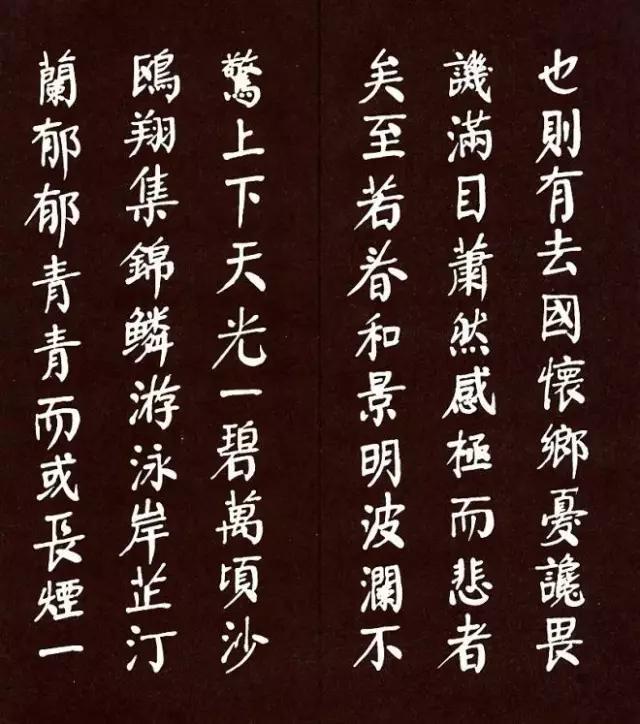 也則有去國懷鄉憂讒畏
譏滿目蕭然感極而悲者
矣至若春和景明波瀾不
驚上下天光一碧萬頃沙
鷗翔集錦鱗游泳岸芷汀
蘭郁郁青青而或長煙一